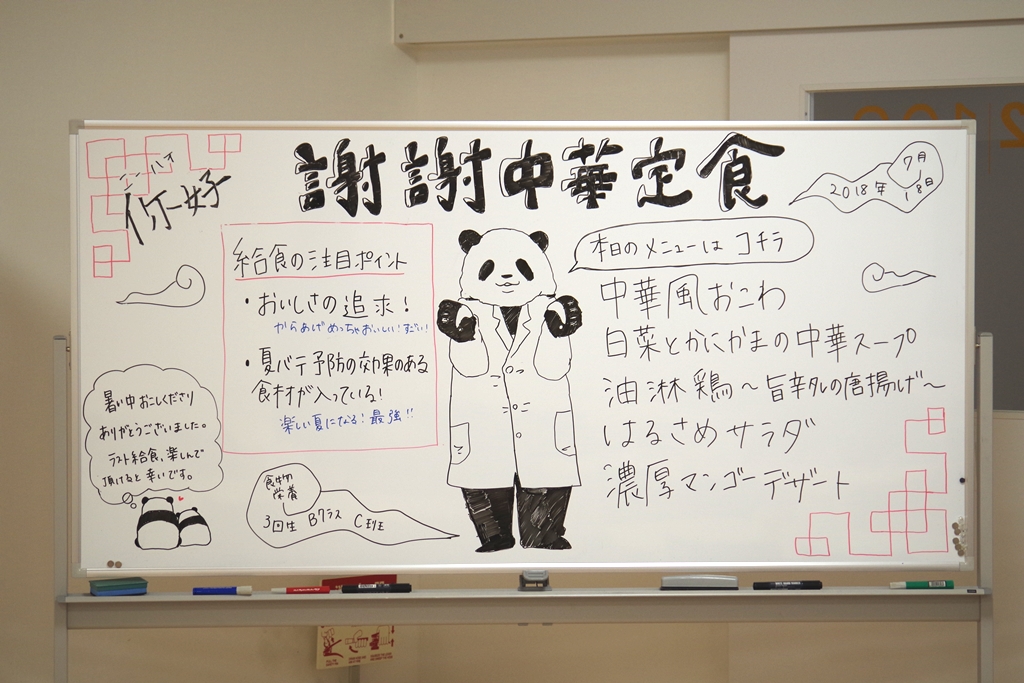 謝謝中華定食
ニーハオ
你好
2018年7月18日
給食の注目ポイント
・おいしさの追求！
からあげめっちゃおいしい！すごい！
・夏バテ予防の効果のある
食材が入っている！
楽しい夏になる！最強!!
本日のメニューは コチラ
中華風おこわ
白菜とかにかまの中華スープ
油淋鶏〜旨辛タレの唐揚げ〜
はるさめサラダ
濃厚マンゴーデザート
暑い中お越しくださり
ありがとうございました。
ラスト給食、楽しんで
頂けると幸いです。
食物
栄養
3回生 Bクラス C班